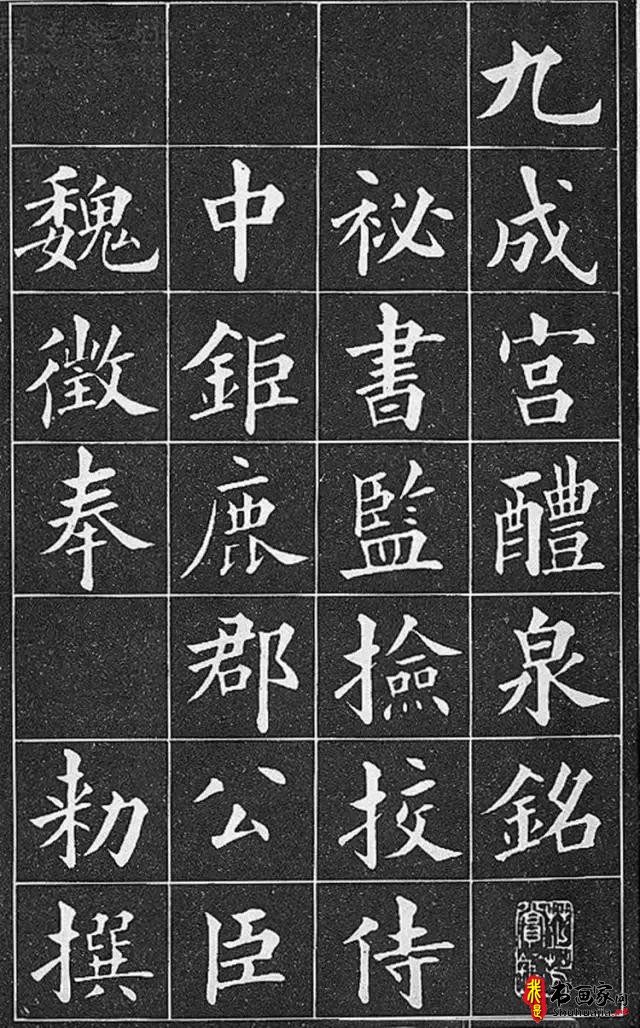 九成宮醴泉銘
祕書監撿挍侍
中鉅鹿郡公臣
魏徵奉 勑撰
我是书画家网
Shuhuajia.net